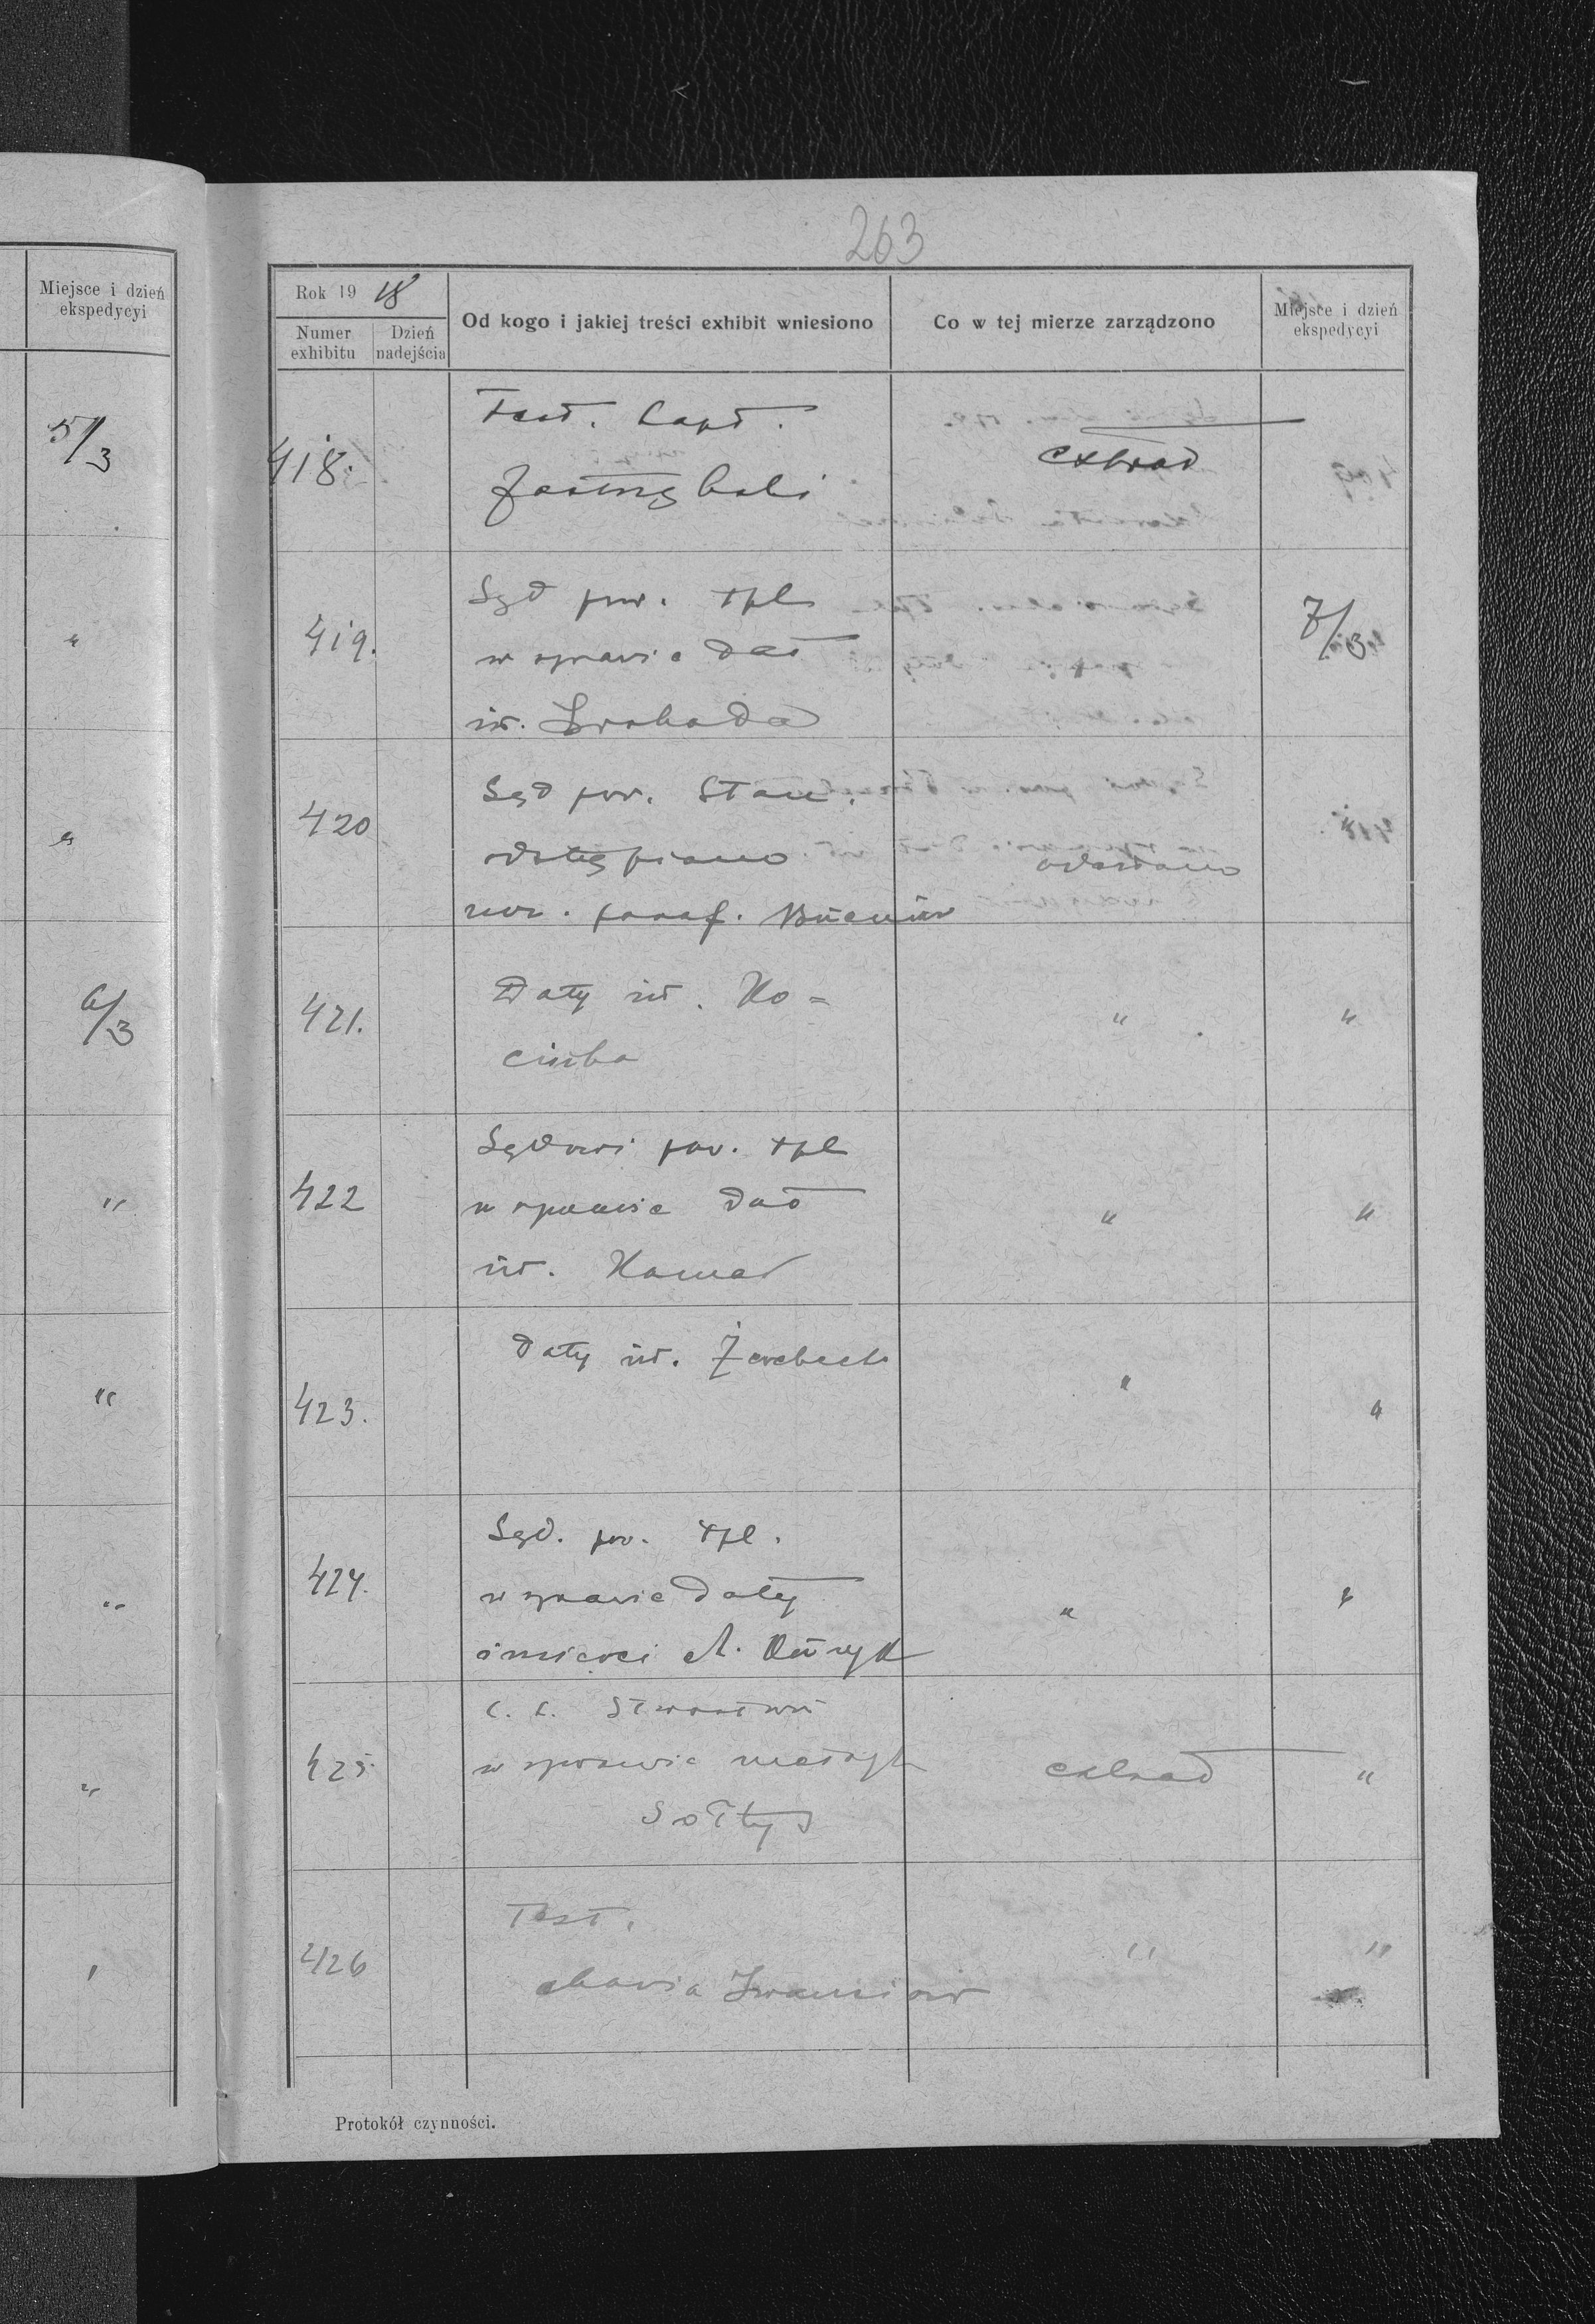 Miejsce i dzień
ekspedycyi
5/3
"
"
6/3
"
"
"
"
"
263
Rok 19 18
Numer
exhibitu
Dzień
nadejścia
Od kogo i jakiej treści exhibit wniesiono
Co w tej mierze zarządzono
Miejsce i dzień
ekspedycyi
418.
Test. Capt.
extrad
419.
Sąd pow. Tpl
w sprawie dat
7/3
420
Sąd pow. Stan.
odstąpiono
odesłano
421.
Daty ur. Ko=
ciuba
"
"
422
Sądowi pow. Tpl
w sprawie dat
ur. Hamar
"
"
423.
Daty ur. Żerebech
"
"
424.
Sąd. pow. Tpl.
w sprawie daty
śmierci A.
"
"
425.
C. k. Starostwu
w sprawie metryk
Sołtys
extrad
"
426
Test.
Maria Iwaniów
"
"
Protokół czynności.